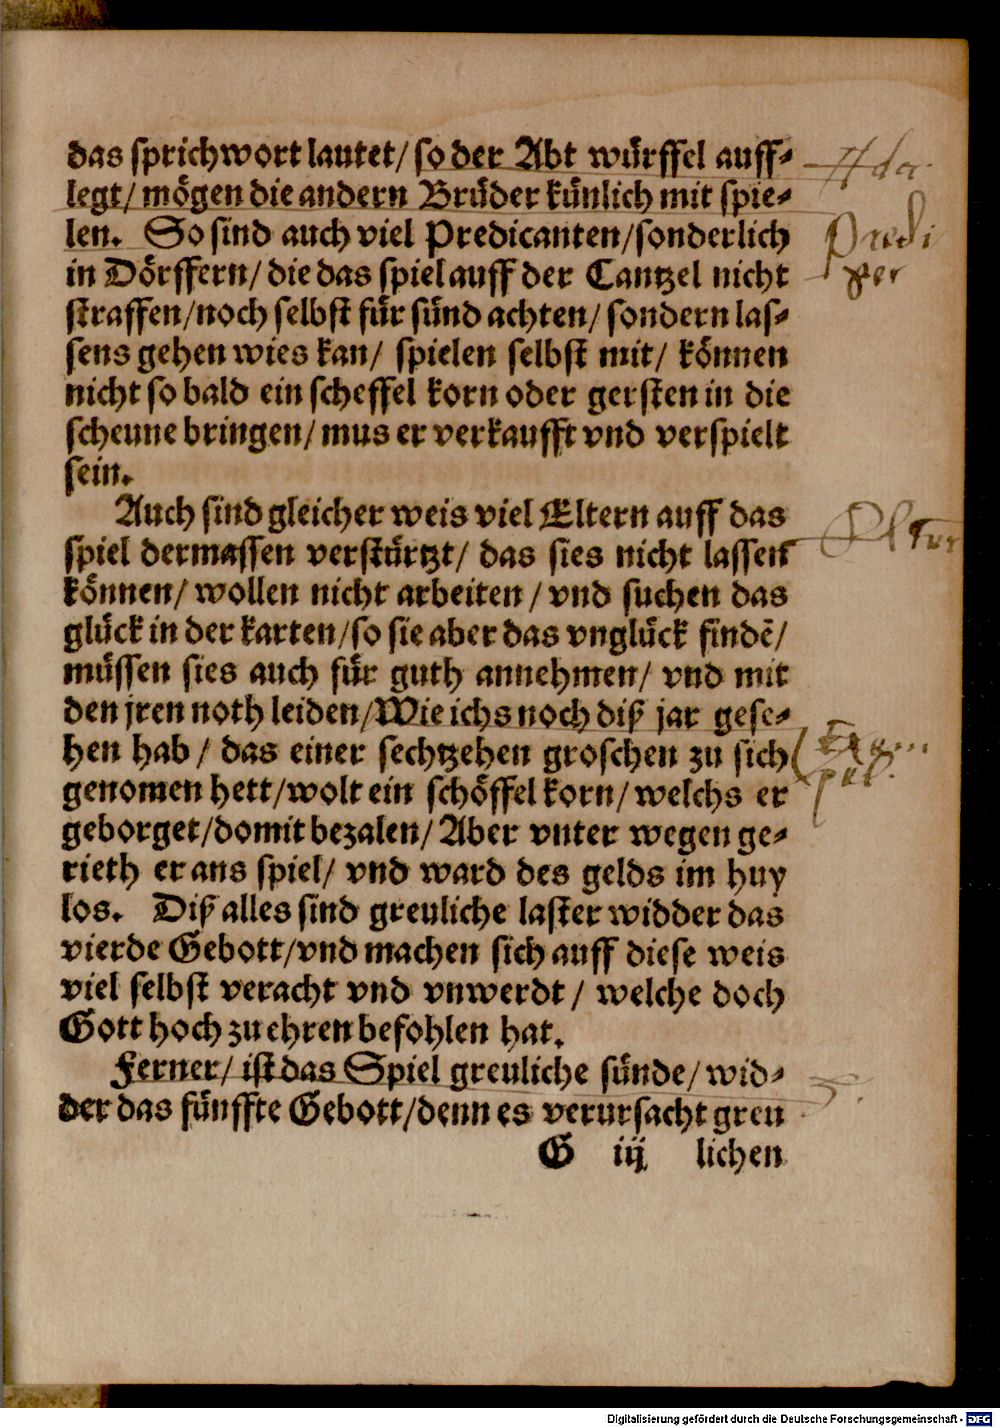 das sprichwort lautet/ so der Abt würffel auff-
legt/ mögen die andern Brüder künlich mit spie-
len. So sind auch viel Predicanten/sonderlich
in Dörffern/ die das spiel auff der Cantzel nicht
straffen/noch selbst für sünd achten/ sondern las-
sens gehen wies kan/ spielen selbst mit/ können
nicht so bald ein scheffel korn oder gersten in die
scheune bringen/ mus er verkaufft vnd verspielt
sein.
Auch sind gleicher weis viel Eltern auff das
spiel dermassen verstürtzt/ das sies nicht lassen
können/ wollen nicht arbeiten/ vnd suchen das
glück in der karten/so sie aber das vnglück findẽ/
müssen sies auch für guth annehmen/ vnd mit
den jren noth leiden/Wie ichs noch diß jar gese-
hen hab/ das einer sechtzehen groschen zu sich
genomen hett/wolt ein schöffel korn/ welchs er
geborget/domit bezalen/ Aber vnter wegen ge-
rieth er ans spiel/ vnd ward des gelds im huy
los. Diß alles sind greuliche laster widder das
vierde Gebott/vnd machen sich auff diese weis
viel selbst veracht vnd vnwerdt/ welche doch
Gott hoch zu ehren befohlen hat.
Ferner/ ist das Spiel greuliche sünde/ wid-
der das fünffte Gebott/denn es verursacht greu
G iij lichen
Predi
ger
Eltern
Exem
pel.
5.
Digitalisierung gefördert durch die Deutsche Forschungsgemeinschaft - DFG